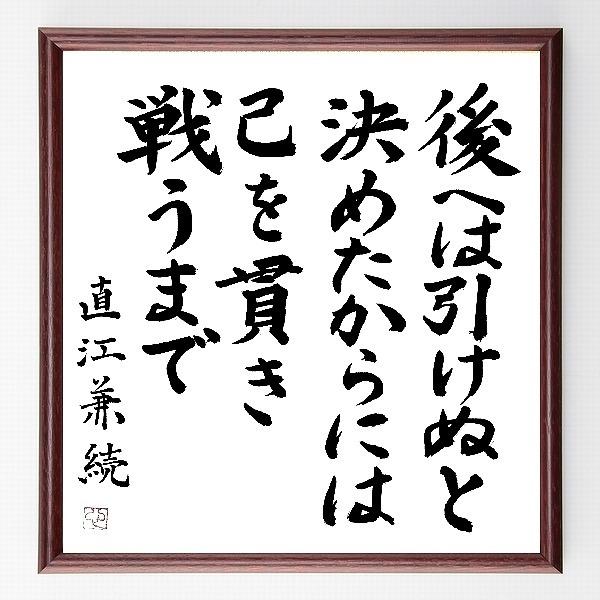 後へは引けぬと
決めたからには
己を貫き
戦うまで
直江兼続